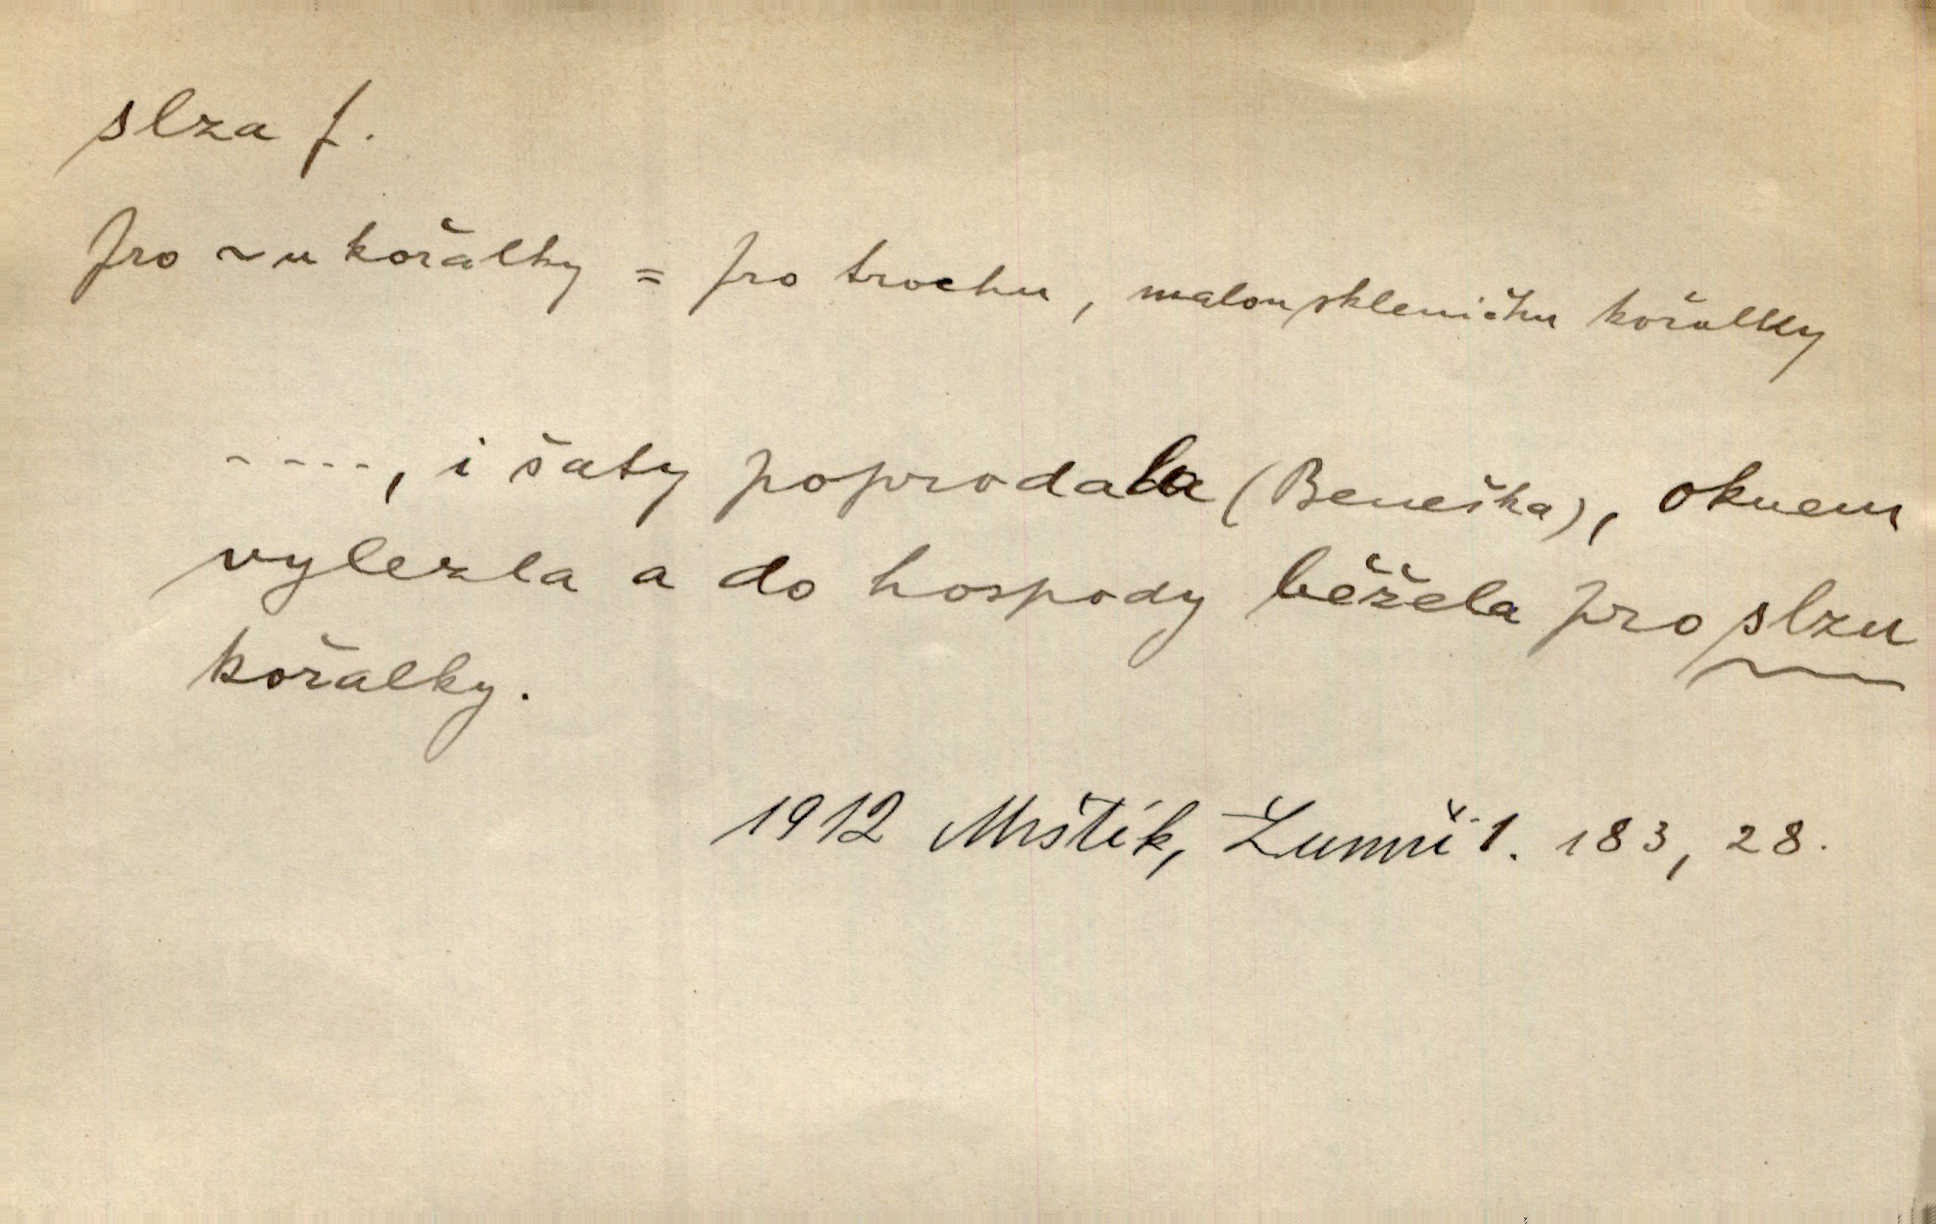 slza f.
pro ~u kořalky = pro trochu, malou skleničku kořalky
- - - - -, i šaty poprodala (Beneška), oknem
vylezla a do hospody běžela pro slzu
kořalky.
1912 Mrštík, Zumři 1. 183, 28.